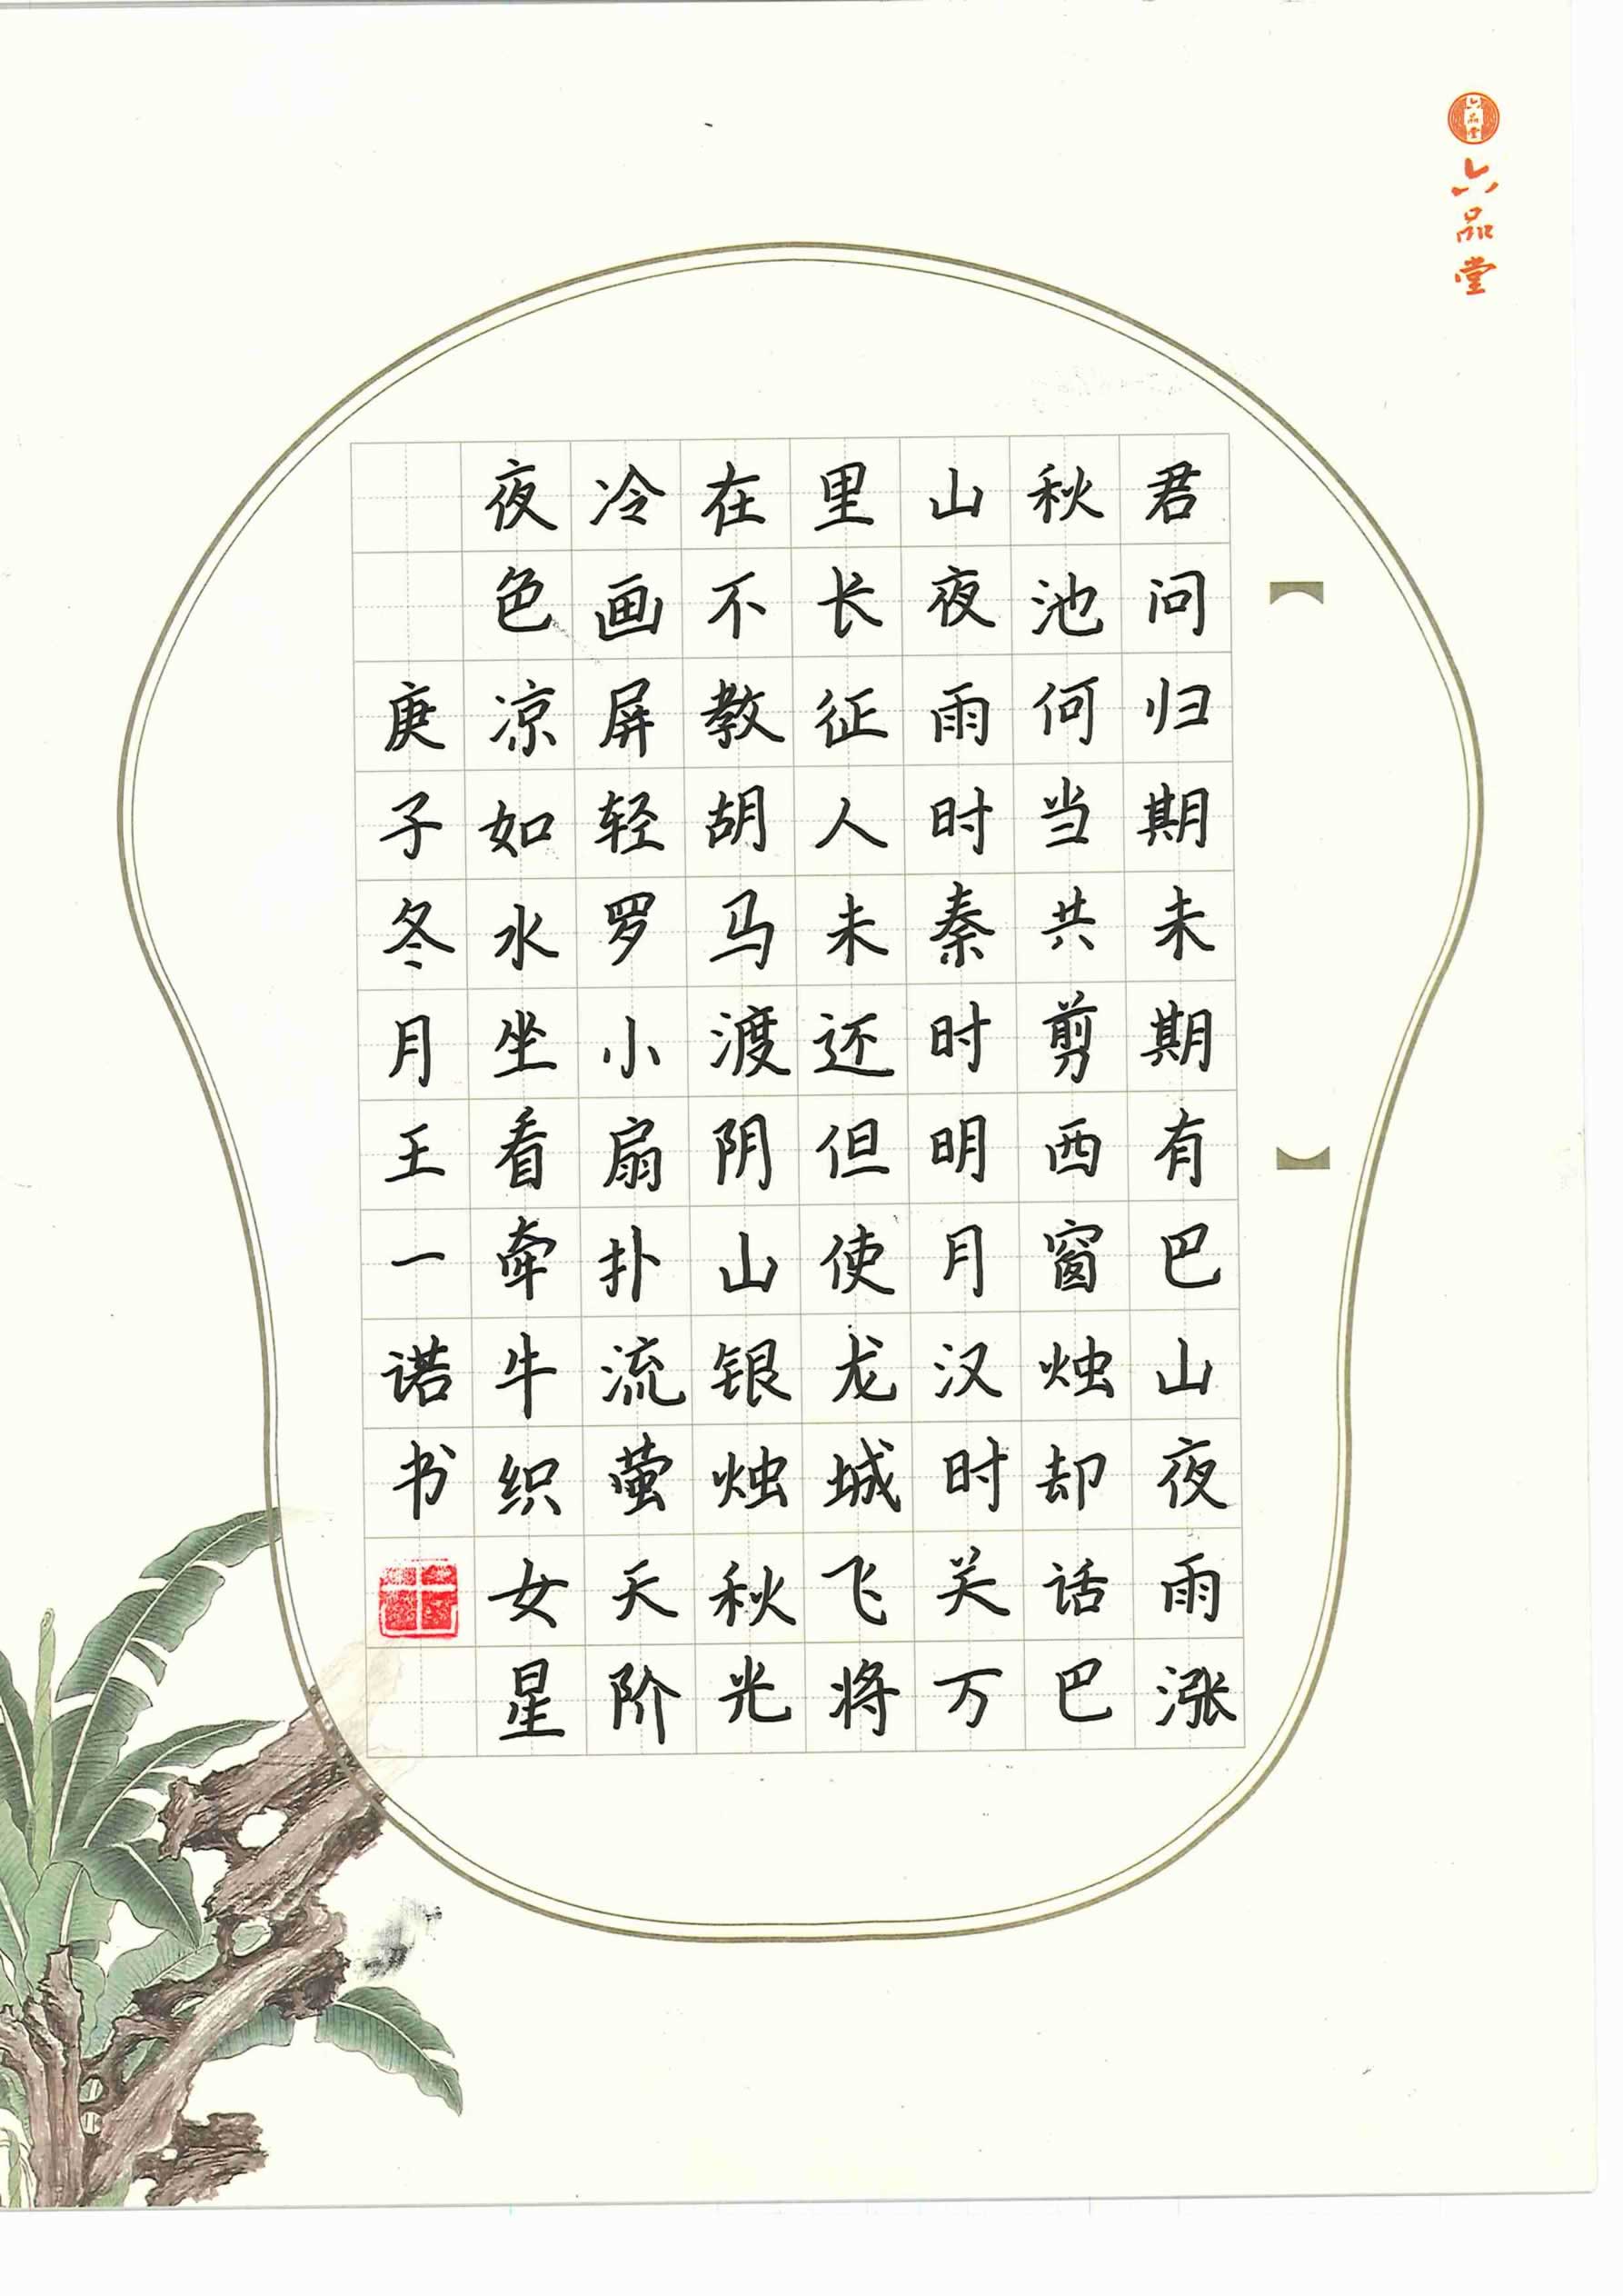 六品堂
六品堂
君问归期未期有巴山夜雨涨
秋池何当共剪西窗烛却话巴
山夜雨时秦时明月汉时关万
里长征人未还但使龙城飞将
在不教胡马渡阴山银烛秋光
冷画屏轻罗小扇扑流萤天阶
夜色凉如水坐看牵牛织女星
庚子冬月王一诺书